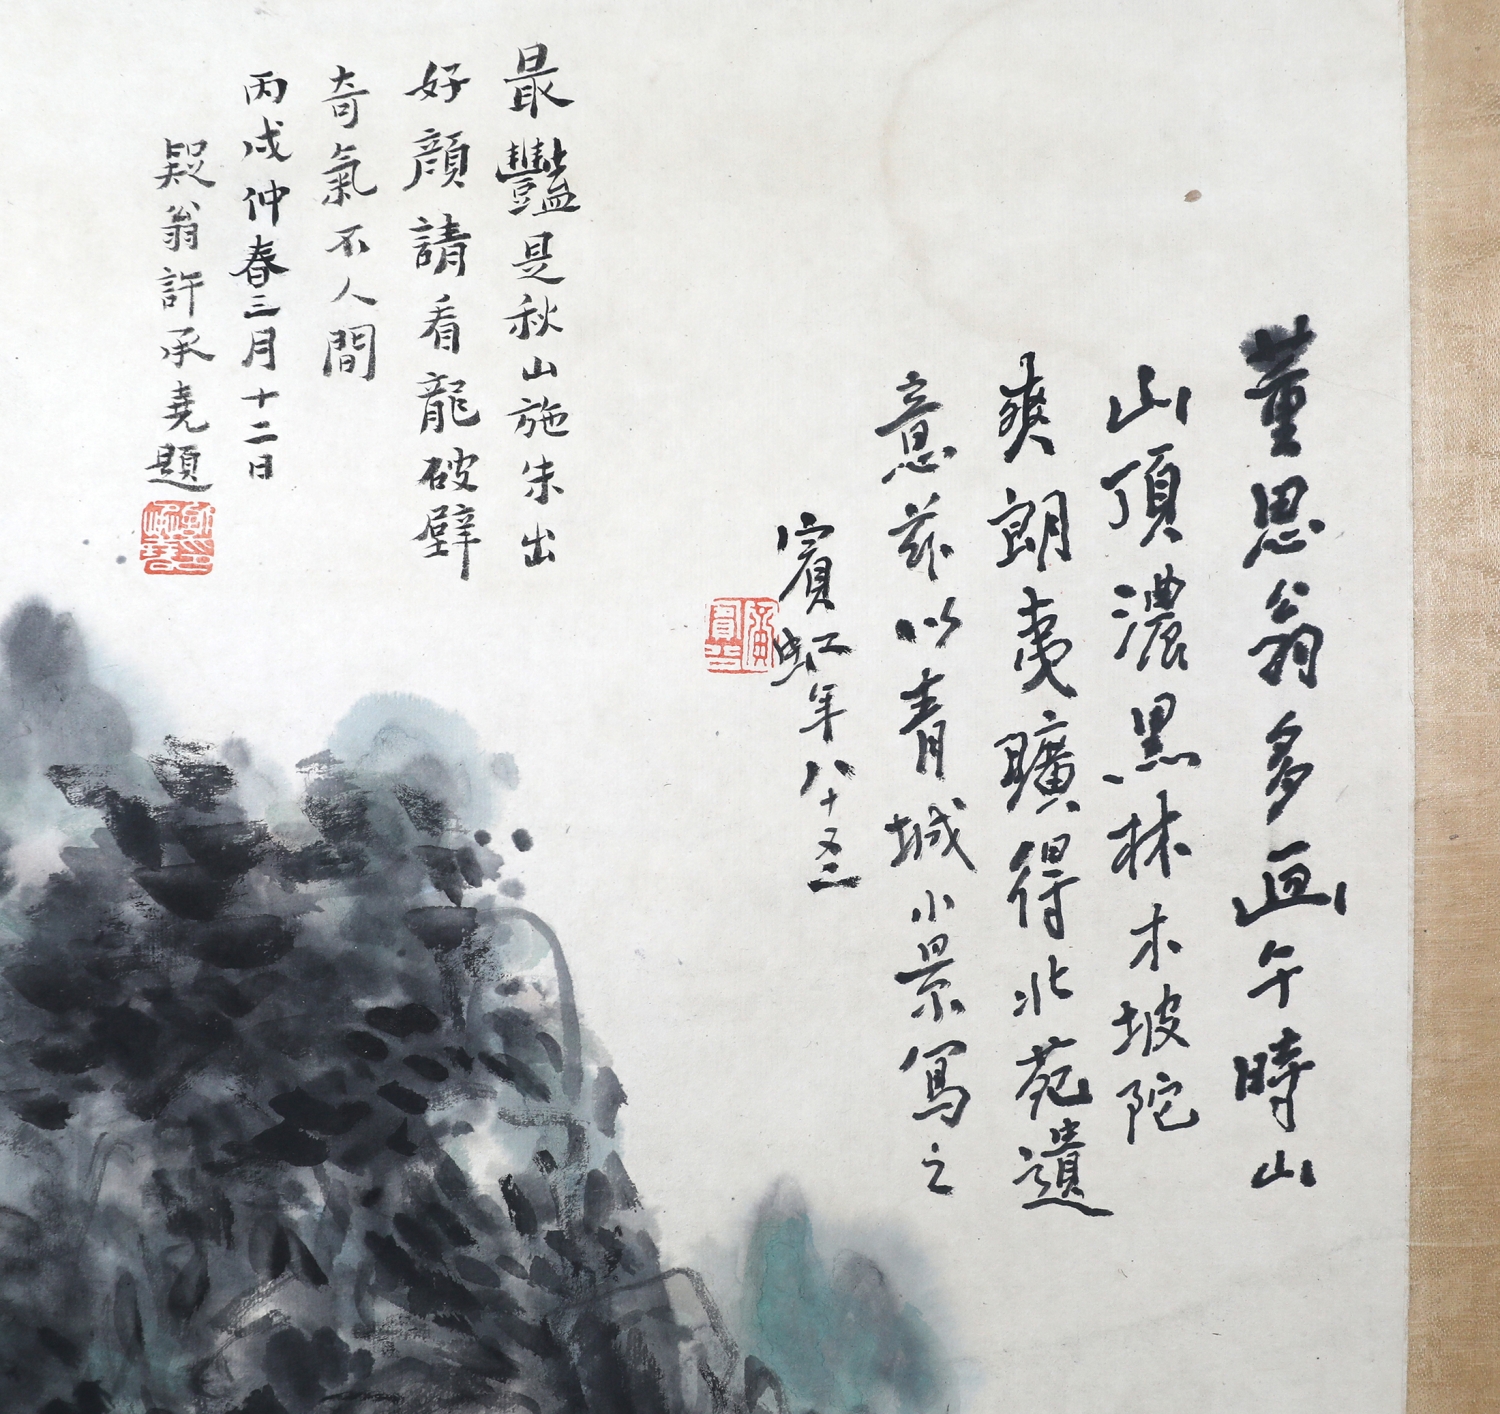 董思翁多画午時山
山頂濃黑林木坡陀
爽朗夷曠得北苑遺
意茲以青城小景寫之
賓虹年八十又三
最豔是秋山施朱出
好顏請看龍破壁
奇氣不人間
丙戌仲春三月十二日
疑翁許承堯題